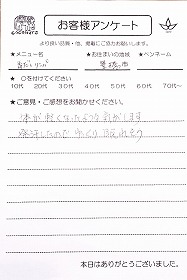 お客様アンケート
より良い品質・他、発展にご協力お願いします。
★メニュー名 ★お住まいの地域 ★ペンネーム
豊橋市
★ ○を付けてください
10代 20代 30代 40代 50代 60代 70代～
★ご意見・ご感想をお聞かせください。
体が軽くなったような気がします
発汗したので ゆっくり眠れそう
本日はありがとうございました。